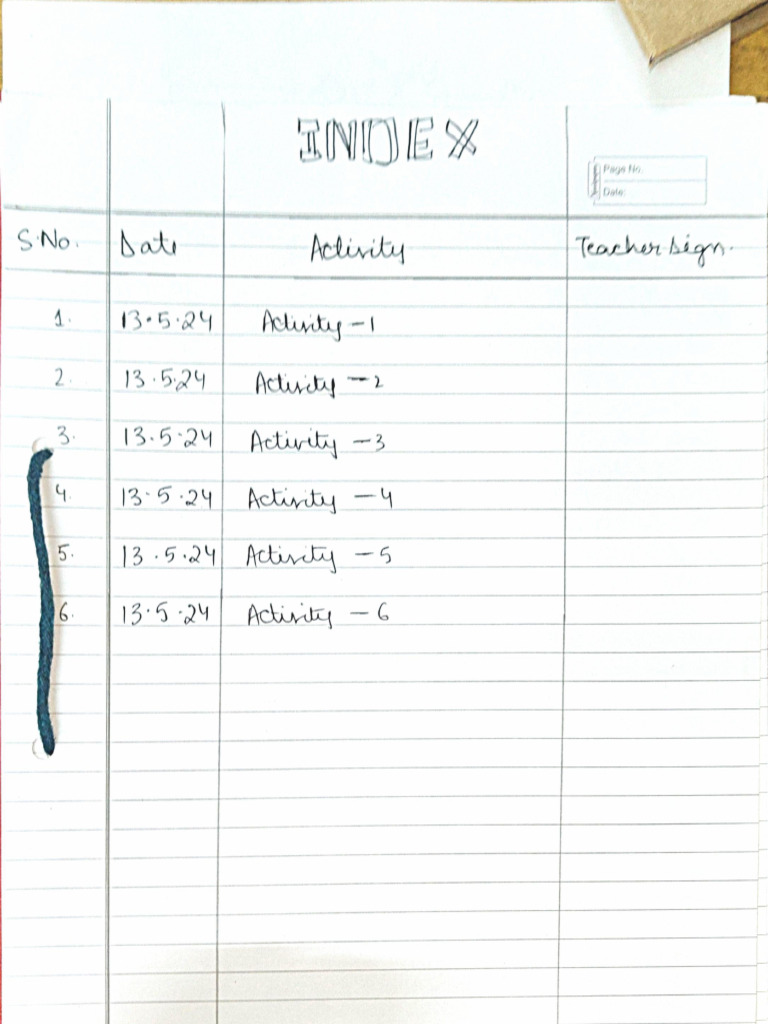 INDEX
Page No.
Date:
S.No. Date Activity Teacher Sign.
1. 13.5.24 Activity - 1
2. 13.5.24 Activity - 2
3. 13.5.24 Activity - 3
4. 13.5.24 Activity - 4
5. 13.5.24 Activity - 5
6. 13.5.24 Activity - 6